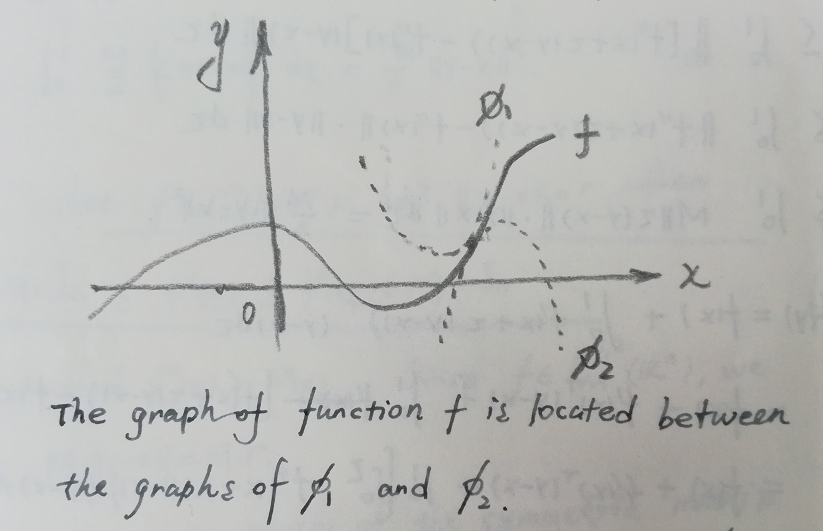 y
ϕ₁
f
x
0
ϕ₂
The graph of function f is located between
the graphs of ϕ₁ and ϕ₂.